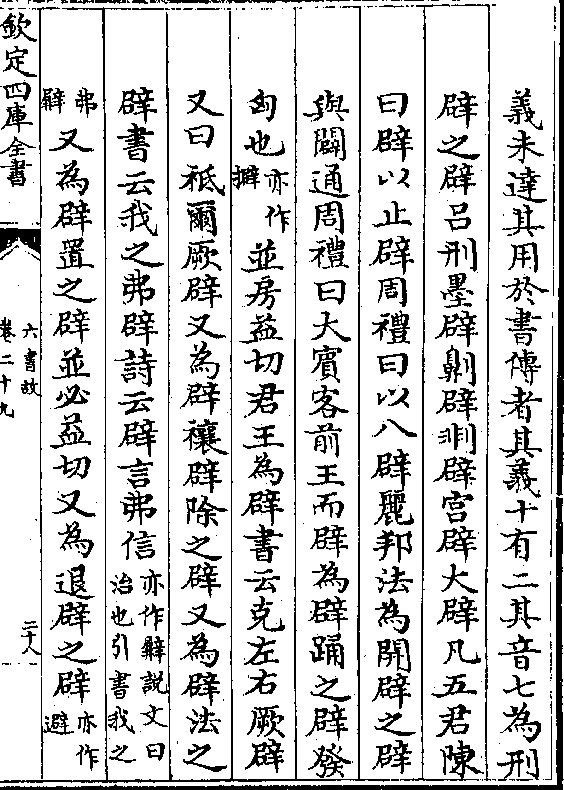 義未達其用於書傳者其義十有二其音七為刑
辟之辟吕刑墨辟劓辟剕辟宫辟大辟凡五君陳
曰辟以止辟周禮曰以八辟麗邦法為開辟之辟
與闢通周禮曰大賓客前王而辟為辟踊之辟發
匈也亦作擗並房益切君王為辟書云克左右厥辟
又曰祗爾厥辟又為辟禳辟除之辟又為辟法之
辟書云我之弗辟詩云辟言弗信亦作䢃説文曰治也引書我之
弗䢃又為辟置之辟並必益切又為退辟之辟亦作避
欽定四庫全書
六書故
卷二十九
二十八